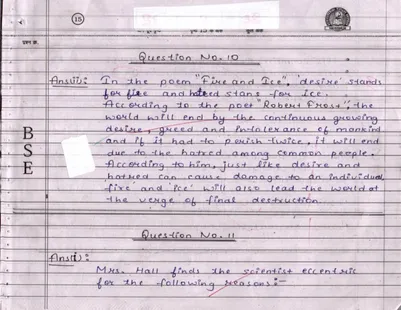 15
Question No. 10
Ans(i): In the poem "Fire and Ice", 'desire' stands
for fire and hatred stans for Ice.
According to the poet "Robert Frost", the
world will end by the continuous growing
desire, greed and intolerance of mankind
and if it had to perish twice, it will end
due to the hatred among common people.
According to him, just like desire and
hatred can cause damage to an individual,
'fire' and 'ice' will also lead the world at
the verge of final destruction.
BSE
Question No. 11
Ans(i):
Mrs. Hall finds the scientist eccentric
for the following reasons:-